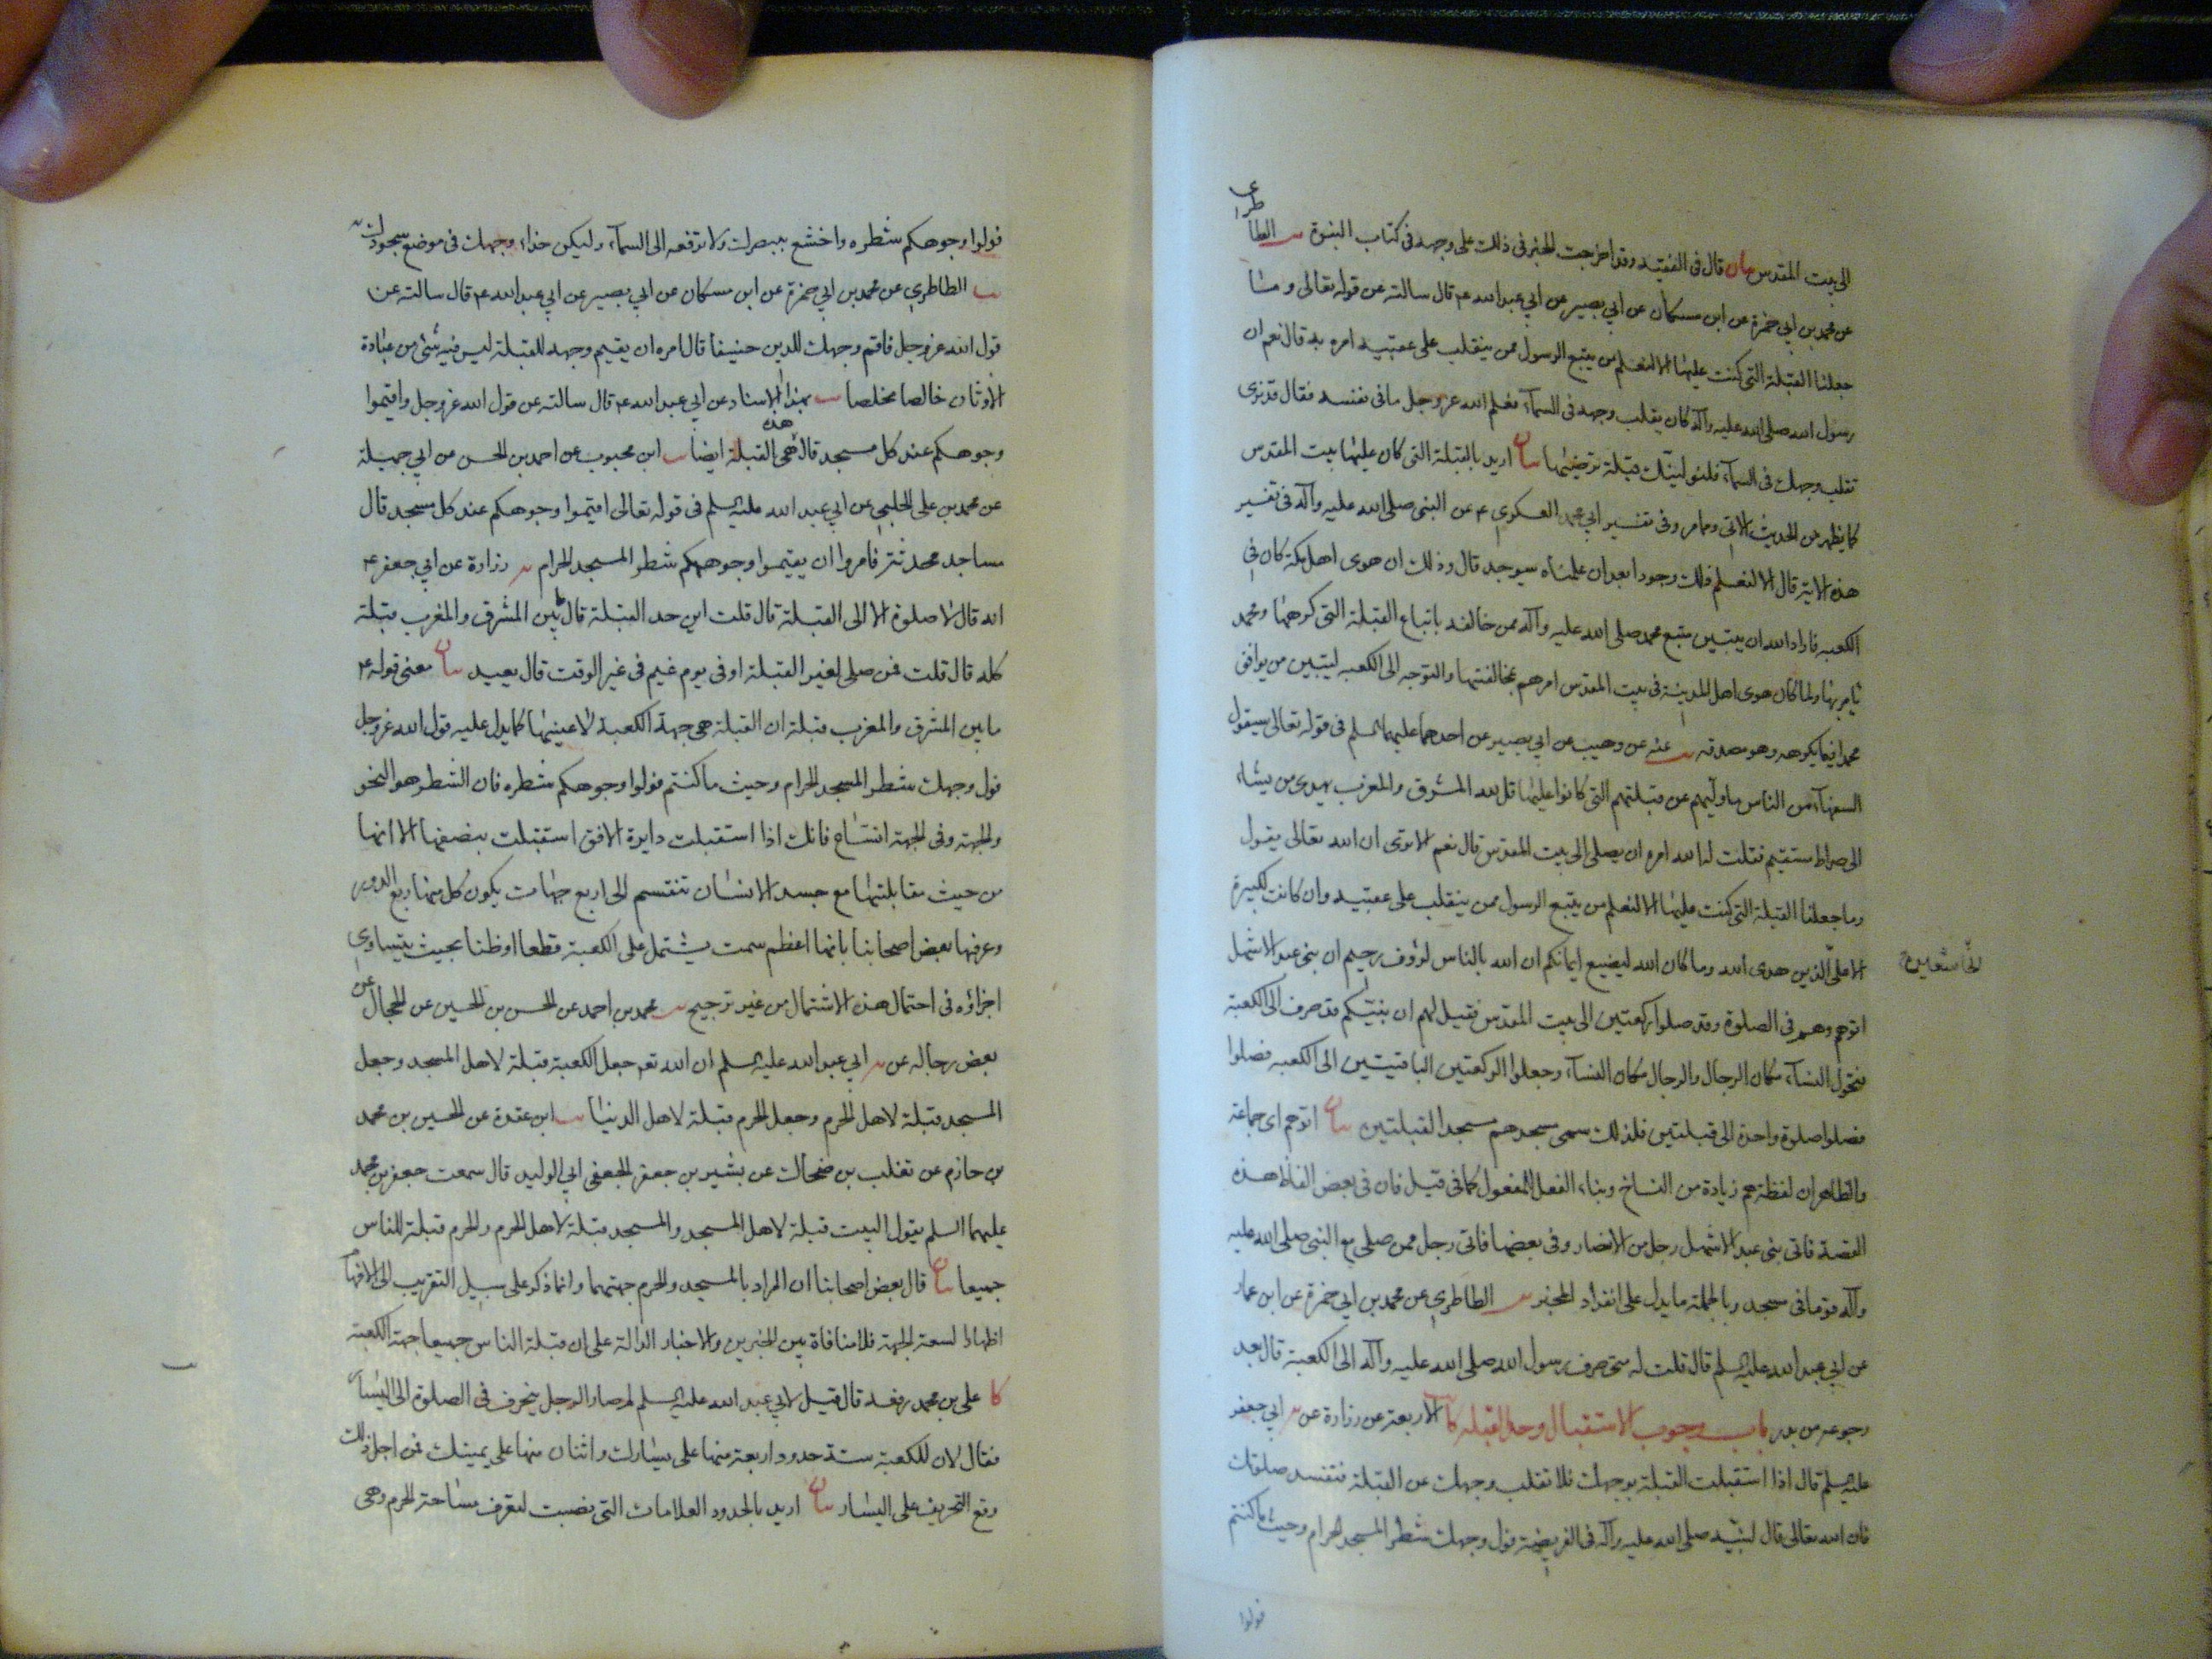 الى بيت المقدس بيان قال فى الفقيه وقد اخرجت الخبر فى ذلك على وجهه فى كتاب النبوة يب الطاطرى
عن محمد بن ابي حمزة عن ابن مسكان عن ابي بصير عن ابي عبد الله ع قال سالته عن قوله تعالى وما
جعلنا القبلة التى كنت عليها الا لنعلم من يتبع الرسول ممن ينقلب على عقبيه امره به قال نعم ان
رسول الله صلى الله عليه وآله كان يقلب وجهه فى السمآء فعلم الله عز وجل ما فى نفسه فقال قد نرى
تقلب وجهك فى السمآء فلنولينّك قبلة ترضيها بيان اريد بالقبلة التى كان عليها بيت المقدس
كما يظهر من الحديث الاتى ومما مر وفى تفسير ابي محمد العسكرى ع عن النبى صلى الله عليه وآله فى تفسير
هذه الاية قال الا لنعلم ذلك وجودا بعد ان علمناه سيوجد قال وذلك ان هوى اهل مكة كان فى
الكعبه فاراد الله ان يبين متبع محمد صلى الله عليه وآله ممن خالفه باتباع القبلة التى كرهها ومحمد
يامر بها ولما كان هوى اهل المدينة فى بيت المقدس امرهم بمخالفتها والتوجه الى الكعبه ليتبين من يوافق
محمدا فيما يكرهه وهو مصدقه يب عنه عن وهيب عن ابي بصير عن احدهما عليهما السلم فى قوله تعالى سيقول
السفهآء من الناس ما وليهم عن قبلتهم التى كانوا عليها قل لله المشرق والمغرب يهدى من يشاء
الى صراط مستقيم فقلت له الله امره ان يصلى الى بيت المقدس قال نعم الا ترى ان الله تعالى يقول
وما جعلنا القبلة التى كنت عليها الا لنعلم من يتبع الرسول ممن ينقلب على عقبيه وان كانت لكبيرة
الا على الذين هدى الله وما كان الله ليضيع ايمانكم ان الله بالناس لرؤف رحيم ان بنى عبد الاشهل
اتوهم وهم فى الصلوة وقد صلوا ركعتين الى بيت المقدس فقيل لهم ان نبيكم قد صرف الى الكعبة
فتحول النسآء مكان الرجال والرجال مكان النسآء وجعلوا الركعتين الباقيتين الى الكعبه فصلوا
فصلوا صلوة واحدة الى قبلتين فلذلك سمى مسجدهم مسجد القبلتين بيان اتوهم اى جماعة
والظاهر ان لفظة هم زيادة من النساخ وبناء الفعل للمفعول كما فى قيل فان فى بعض الفاظ هذه
القصة فاتى بنى عبد الاشهل رجل من الانصار وفى بعضها فاتى رجل ممن صلى مع النبى صلى الله عليه
وآله قوما فى مسجد وبالجملة ما يدل على انفراد المخبر يب الطاطرى عن محمد بن ابي حمزة عن ابن عمار
عن ابي عبد الله عليه السلم قال قلت له متى صرف رسول الله صلى الله عليه وآله الى الكعبة قال بعد
رجوعه من بدر باب وجوب الاستقبال وحد القبله كا الاربعة عن زرارة عن ابي جعفر
عليه السلم قال اذا استقبلت القبلة بوجهك فلا تقلب وجهك عن القبلة فتفسد صلوتك
فان الله تعالى قال لنبيّه صلى الله عليه وآله فى الفريضة فول وجهك شطر المسجد الحرام وحيث ما كنتم
فولوا
فولوا وجوهكم شطره واخشع ببصرك ولا ترفعه الى السمآء وليكن حذاء وجهك فى موضع سجودك
يب الطاطرى عن محمد بن ابي حمزة عن ابن مسكان عن ابي بصير عن ابي عبد الله ع قال سالته عن
قول الله عز وجل فاقم وجهك للدين حنيفا قال امره ان يقيم وجهه للقبلة ليس فيه شئ من عبادة
الاوثان خالصا مخلصا يب بهذا الاسناد عن ابي عبد الله ع قال سالته عن قول الله عز وجل واقيموا
وجوهكم عند كل مسجد قال هذه هى القبلة ايضا يب ابن محبوب عن احمد بن الحسن عن ابي جميلة
عن محمد بن على الحلبى عن ابي عبد الله عليه السلم فى قوله تعالى اقيموا وجوهكم عند كل مسجد قال
مساجد محدثة فامروا ان يقيموا وجوههم شطر المسجد الحرام يه زرارة عن ابي جعفر ع
انه قال لا صلوة الا الى القبلة قال قلت اين حد القبلة قال ما بين المشرق والمغرب قبلة
كله قال قلت فمن صلى لغير القبلة او فى يوم غيم فى غير الوقت قال يعيد بيان معنى قوله ع
ما بين المشرق والمغرب قبلة ان القبلة هى جهة الكعبة لا عينها كما يدل عليه قول الله عز وجل
فول وجهك شطر المسجد الحرام وحيث ما كنتم فولوا وجوهكم شطره فان الشطر هو النحو
والجهة وفى الجهة اتساع فانك اذا استقبلت دايرة الافق استقبلت بنصفها الا انها
من حيث مقابلتها مع جسد الانسان تنقسم الى اربع جهات يكون كل منها ربع الدور
وعرفها بعض اصحابنا بانها اعظم سمت يشتمل على الكعبة قطعا او ظنا بحيث يتساوى
اجزاؤه فى احتمال هذه الاشتمال من غير ترجيح يب محمد بن احمد عن الحسن بن الحسين عن الحجال عن
بعض رجاله عن يه ابي عبد الله عليه السلم ان الله تع جعل الكعبة قبلة لاهل المسجد وجعل
المسجد قبلة لاهل الحرم وجعل الحرم قبلة لاهل الدنيا يب ابن عقدة عن الحسين بن محمد
بن حازم عن تغلب بن ضحاك عن بشير بن جعفر الجعفى ابي الوليد قال سمعت جعفر بن محمد
عليهما السلم يقول البيت قبلة لاهل المسجد والمسجد قبلة لاهل الحرم والحرم قبلة للناس
جميعا بيان قال بعض اصحابنا ان المراد بالمسجد والحرم جهتهما وانما ذكر على سبيل التقريب الى الافهام
اظهارا لسعة الجهة فلا منافاة بين الخبرين والاخبار الدالة على ان قبلة الناس جميعا جهة الكعبة
كا على بن محمد رفعه قال قيل لابي عبد الله عليه السلم لم صار الرجل ينحرف فى الصلوة الى اليسار
فقال لان للكعبة ستة حدود اربعة منها على يسارك واثنان منها على يمينك فمن اجل ذلك
وقع التحريف على اليسار بيان اريد بالحدود العلامات التى نصبت لتعرف مساحة الحرم وهى